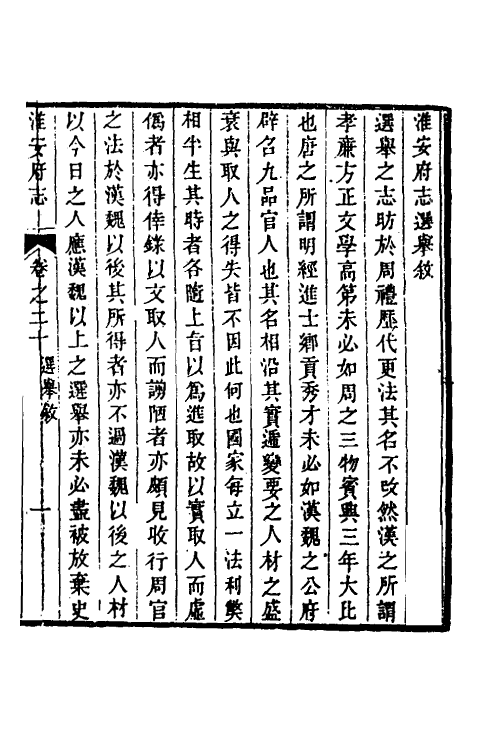 淮安府志選舉敘
選舉之志昉於周禮歷代更法其名不攺然漢之所謂
孝亷方正文學高第未必如周之三物賓興三年大比
也唐之所謂明經進士鄉貢秀才未必如漢魏之公府
辟名九品官人也其名相沿其實遞變要之人材之盛
衰與取人之得失皆不因此何也國家每立一法利獘
相半生其時者各隨上旨以爲進取故以實取人而虛
僞者亦得倖錄以文取人而謭陋者亦頗見收行周官
之法於漢魏以後其所得者亦不過漢魏以後之人材
以今日之人應漢魏以上之選舉亦未必盡被放棄史
淮安府志
卷之二十
選舉敘
一